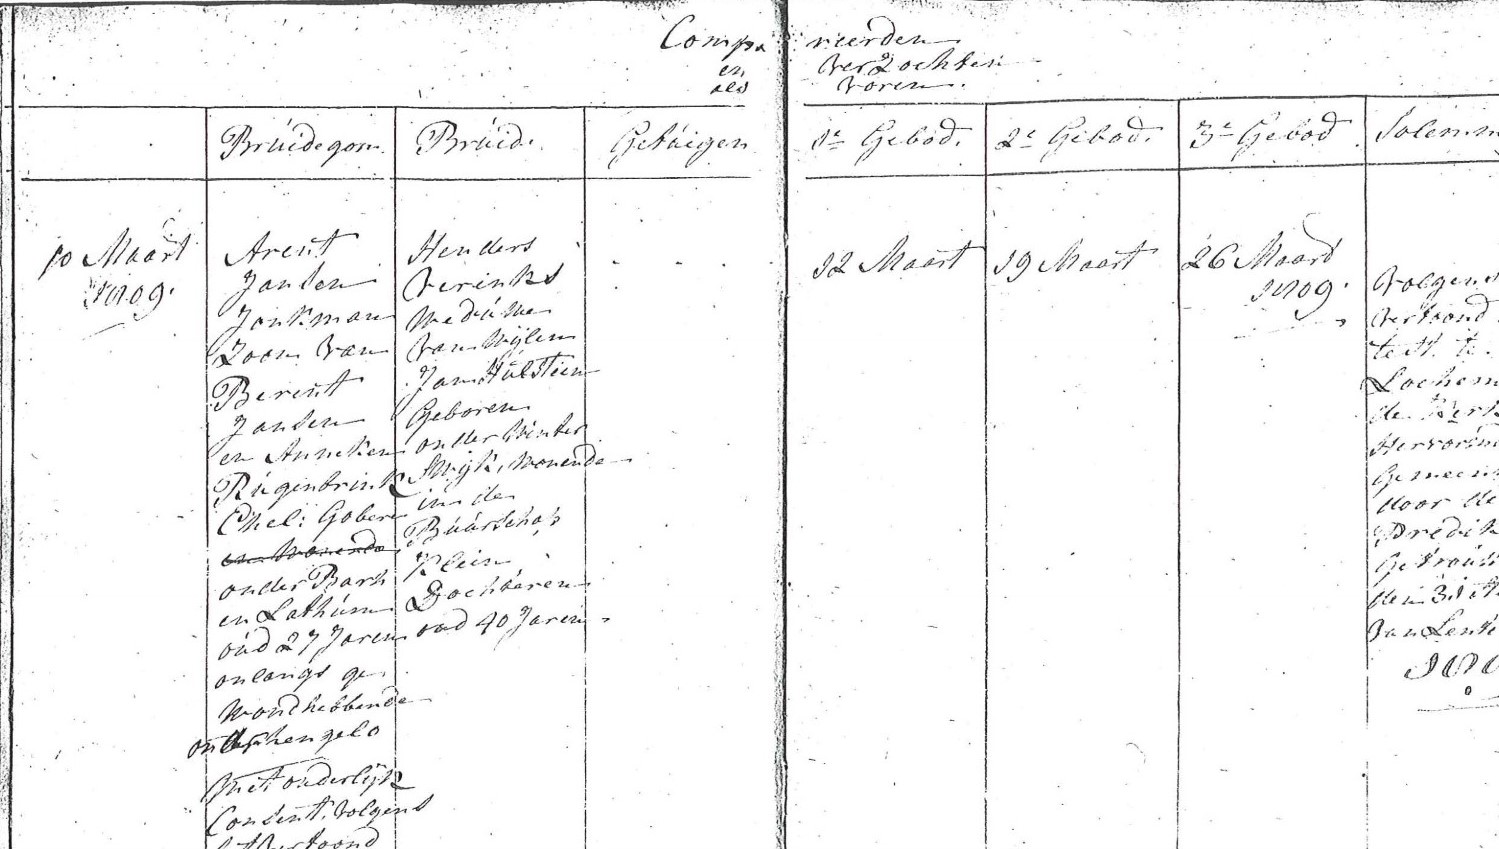 Compa reerden
en verzochten
als voren.
Bruidegom. Bruid. Getuigen 1e Gebod. 2e Gebod. 3e Gebod Solem
10 Maart
1809.
Arent
Jansen
Jonkman
Zoon van
Berent
Jansen
en Anneken
Rugenbrink
Ehel: Gebore
en wonende
onder Barh
en Lathum
oud 27 Jaren
onlangs ge
woond hebbende
onder hengelo
met ouderlijk
Consent, volgens
Henders
Verinks
Weduwe
van Wijlen
Jan Hulstien
Geboren
onder Winter
Swijk, wonende
in de
Buurschap
Klein
Dochteren
oud 40 Jaren
12 Maart
19 Maart
26 Maart
1809.
volgens
vertoond
te
Lochem
de Kerk
Hervormd
Gemeen
door de
Predik
Getrouw
den 31
van Lente